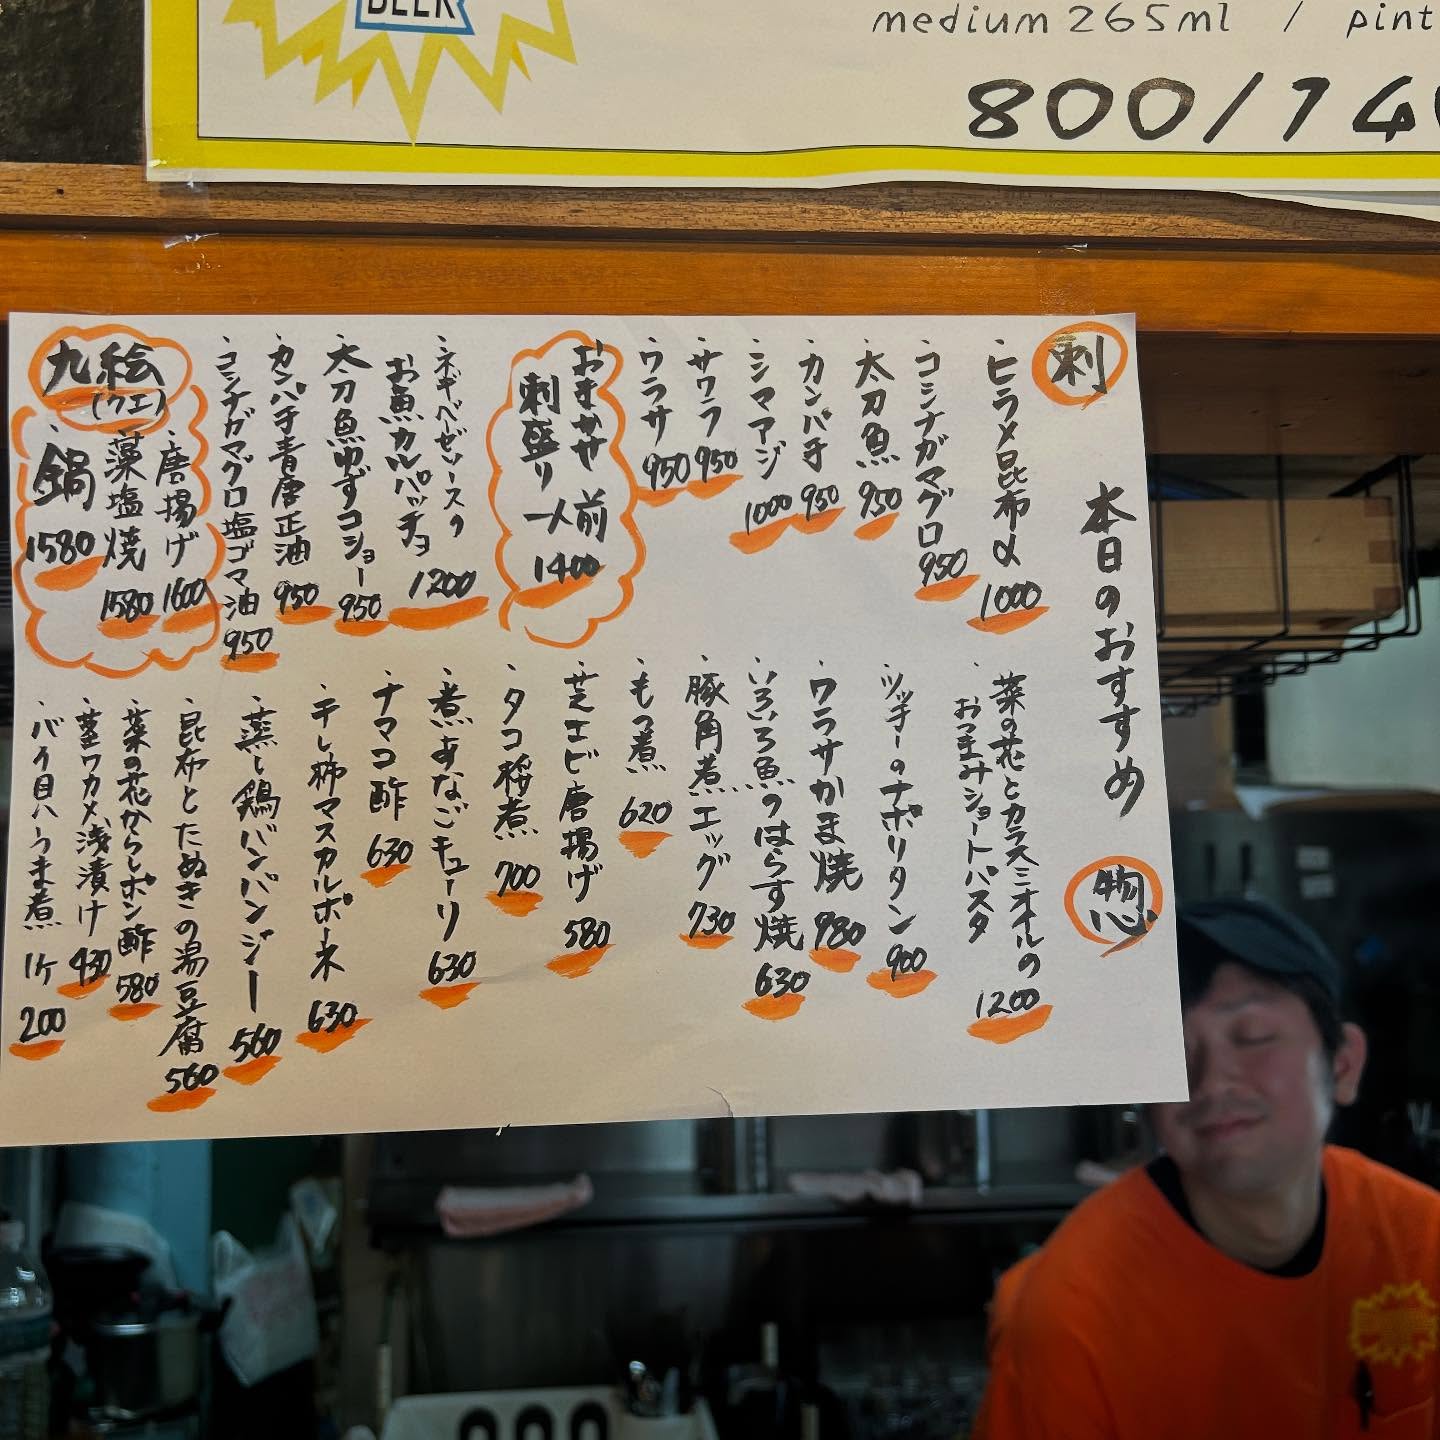 BEER
medium 265ml / pint
800/140
本日のおすすめ
刺
・ヒラメ昆布〆 1000
・コシナガマグロ 950
・太刀魚 950
・カンパチ 950
・シマアジ 1000
・サワラ 950
・ワラサ 950
おまかせ
刺盛り
一人前
1400
・ネギベゼソースの
お魚カルパッチョ 1200
・太刀魚ゆずコショー 950
・カンパチ青唐正油 950
・コシナガマグロ塩ゴマ油 950
九絵
(クエ)
・唐揚げ 1600
・藻塩焼 1580
・鍋 1580
惣
・菜の花とカラスミオイルの
おつまみショートパスタ 1200
・ツッチーのナポリタン 900
・ワラサかま焼 980
・いろいろ魚のはらす焼 630
・豚角煮エッグ 730
・もつ煮 620
・芝エビ唐揚げ 580
・タコ桜煮 700
・煮あなごキューリ 630
・ナマコ酢 630
・干し柿マスカルポーネ 630
・蒸し鶏バンバンジー 560
・昆布とたぬきの湯豆腐 560
・菜の花からしポン酢 580
・茎ワカメ浅漬け 430
・バイ貝ハうま煮 1ケ 200